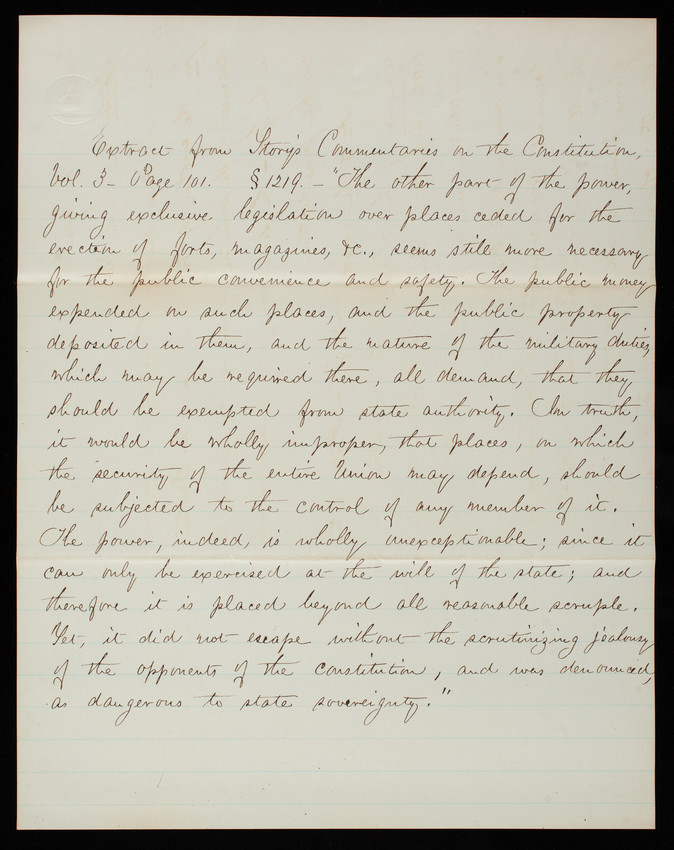 Extract from Story's Commentaries on the Constitution,
Vol. 3 - Page 101. § 1219. - "The other part of the power,
giving exclusive legislation over places ceded for the
erection of forts, magazines, &c., seems still more necessary
for the public convenience and safety. The public money
expended on such places, and the public property
deposited in them, and the nature of the military duties,
which may be required there, all demand, that they
should be exempted from state authority. In truth,
it would be wholly improper, that places, on which
the security of the entire Union may depend, should
be subjected to the control of any member of it.
The power, indeed, is wholly unexceptionable; since it
can only be exercised at the will of the state; and
therefore it is placed beyond all reasonable scruple.
Yet, it did not escape without the scrutinizing jealousy
of the opponents of the constitution, and was denounced,
as dangerous to state sovereignty."